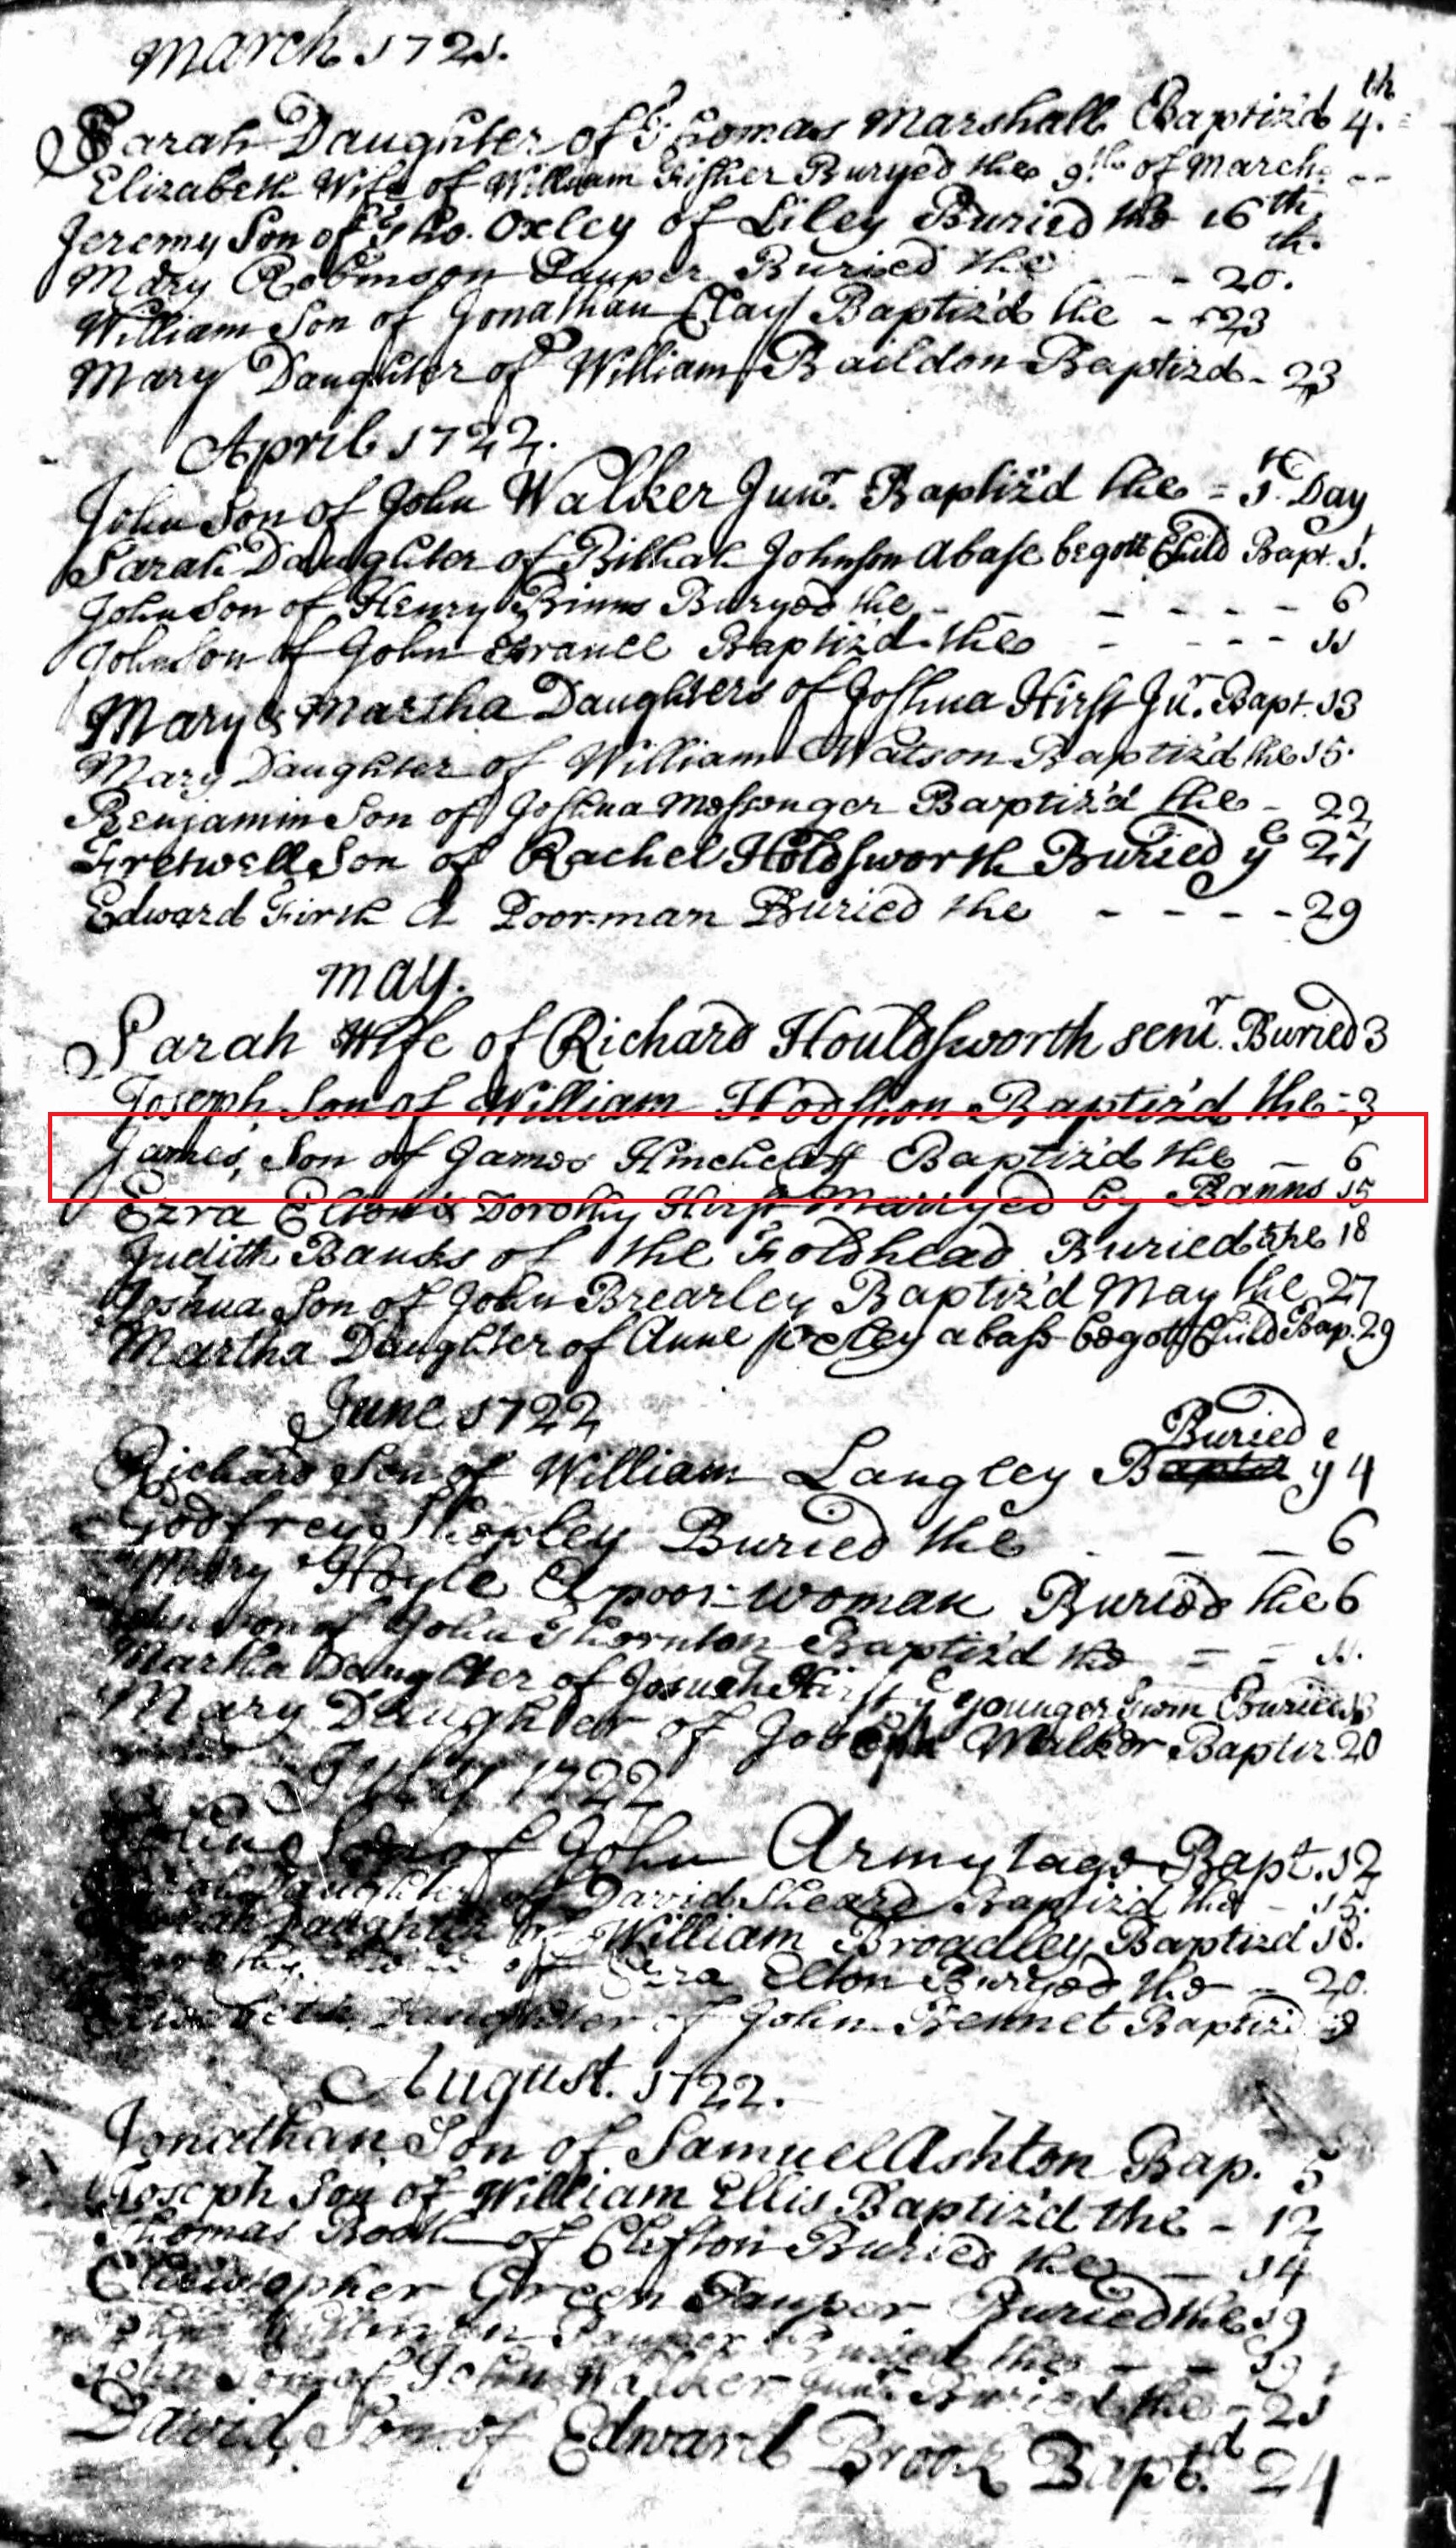 March 1721.
Sarah Daughter of Thomas Marshall Baptiz'd 4.th
Elizabeth Wife of William Fisher Buryed the 9th of March
Jeremy Son of Tho. Oxley of Liley Buried the 16th
Mary Robinson Pauper Buried the - - 20.th
William Son of Jonathan Clay Baptiz'd the - 23
Mary Daughter of William Baildon Baptizd - 23
April 1722.
John Son of John Walker Junr. Baptiz'd the = 1st Day
Sarah Daughter of Bilhah Johnson A base begott Child Bapt. 1.
John Son of Henry Binns Buryed the - - - - - - 6
John Son of John France Baptiz'd the - - - - 11
Mary & Martha Daughters of Joshua Hirst Jur. Bapt. 13
Mary Daughter of William Watson Baptiz'd the 15.
Benjamin Son of Joshua Messenger Baptiz'd the - 22
Fretwell Son of Rachel Holdsworth Buried ye 27
Edward Firth A Poor-man Buried the - - - - 29
May.
Sarah Wife of Richard Houldsworth senr. Buried 3
Joseph Son of William Hodgson Baptiz'd the - 3
James, Son of James Hinchclaff Baptiz'd the - 6
Ezra Elton & Dorothy Hirst Marryed by Banns 15
Judith Banks of the Foldhead Buried the 18
Joshua Son of John Brearley Baptiz'd May the 27
Martha Daughter of Anne a base begott Child Bap. 29
June 1722
Richard Son of William Langley Buried ye 4
Godfrey Buried the - - - 6
Mary Hoyle A poor-woman Buried the 6
Son of John Thornton Baptiz'd the = - 11.
Martha Daughter of Josuah Hirst ye younger Twin Buried 13
Mary Daughter of Joseph Walker Baptiz 20
July 1722
Son of John Armytage Bapt. 12
Daughter of David Sheard Baptiz'd the - 15.
Daughter of William Broadley Baptizd 18.
of Ezra Elton Buryed the - 20.
Daughter of John Bennet Baptizd
August. 1722.
Jonathan Son of Samuel Ashton Bap. 5
Joseph Son of William Ellis Baptiz'd the - 12
Thomas Booth of Clifton Buried the - 14
Christopher Green Pauper Buried the 19
Pauper Buried the - - 19
John Son of John Walker Junr. Buried the - 21
David Son of Edward Brook Baptd. 24